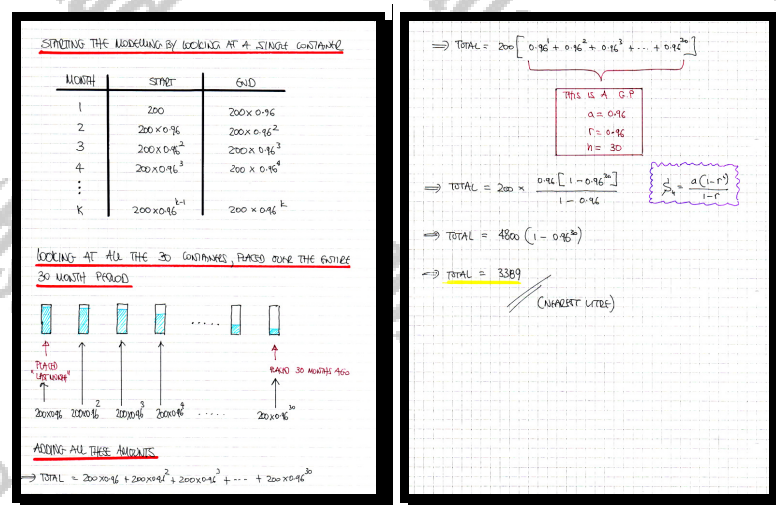 STARTING THE MODELLING BY LOOKING AT A SINGLE CONTAINER
MONTH START END
1 200 200 x 0.96
2 200 x 0.96 200 x 0.96²
3 200 x 0.96² 200 x 0.96³
4 200 x 0.96³ 200 x 0.96⁴
⋮
K 200 x 0.96ᵏ⁻¹ 200 x 0.96ᵏ
LOOKING AT ALL THE 30 CONTAINERS, PLACED OVER THE ENTIRE
30 MONTH PERIOD
.....
"PLACED
LAST MONTH"
PLACED 30 MONTHS AGO
200x0.96 200x0.96² 200x0.96³ 200x0.96⁴ ..... 200x0.96³⁰
ADDING ALL THESE AMOUNTS
⇒ TOTAL = 200x0.96 + 200x0.96² + 200x0.96³ + --- + 200x0.96³⁰
⇒ TOTAL = 200 [ 0.96¹ + 0.96² + 0.96³ + ... + 0.96³⁰ ]
THIS IS A G.P
a = 0.96
r = 0.96
n = 30
⇒ TOTAL = 200 × 0.96[1 - 0.96³⁰] / 1 - 0.96
Sₙ = a(1-rⁿ) / 1-r
⇒ TOTAL = 4800 (1 - 0.96³⁰)
⇒ TOTAL = 3389
(NEAREST LITRE)